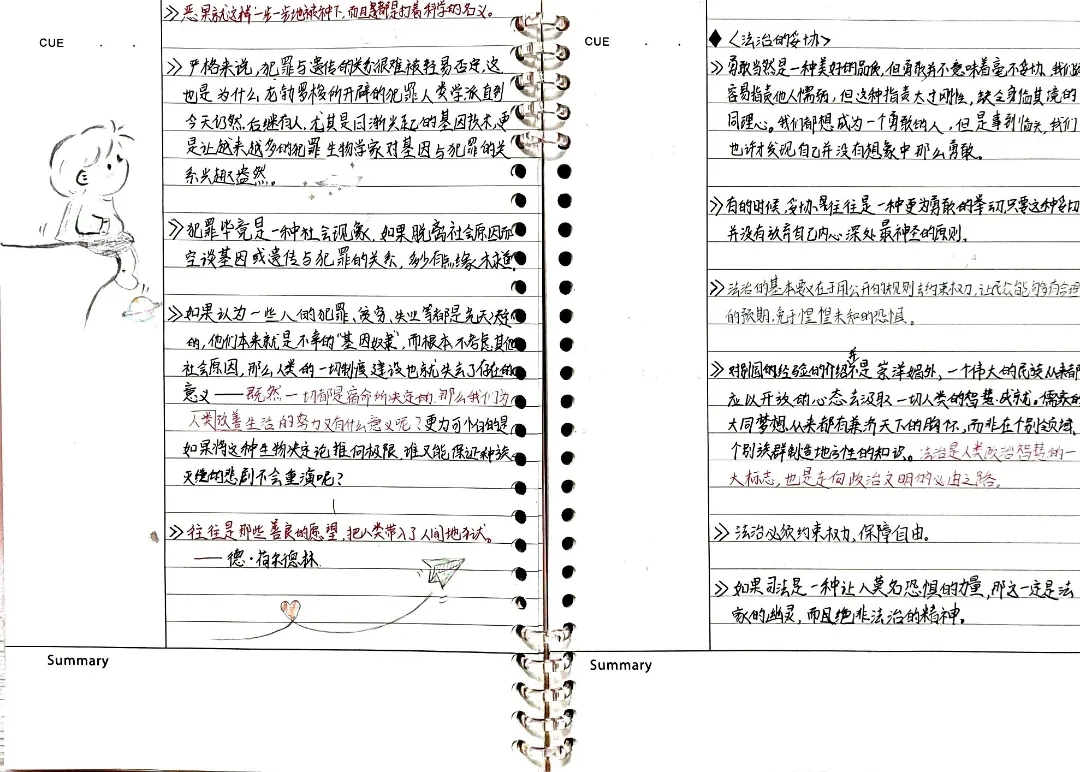 》恶果就这样一步一步地被种下,而且是都是打着科学的名义。
CUE . .
》严格来说,犯罪与遗传的关系很难被轻易否定,这
也是为什么龙勃罗梭所开辟的犯罪人类学派直到
今天仍然后继有人,尤其是日渐兴起的基因技术,更
是让越来越多的犯罪生物学家对基因与犯罪的关
系兴趣盎然。
》犯罪毕竟是一种社会现象,如果脱离社会原因而
空谈基因或遗传与犯罪的关系,多少有点缘木求鱼。
》如果认为一些人的犯罪、贫穷、失业等都是先天决定
的,他们本来就是不幸的“基因奴隶”,而根本不考虑其他
社会原因,那么人类的一切制度建设也就失去了存在的
意义——既然一切都是宿命所决定的,那么我们为
人类改善生活的努力又有什么意义呢?更为可怕的是
如果将这种生物决定论推向极限,谁又能保证种族
灭绝的悲剧不会重演呢?
》往往是那些善良的愿望,把人类带入了人间地狱。
——德·荷尔德林
Summary
CUE . .
◆〈法治的妥协〉
》勇敢当然是一种美好的品质,但勇敢并不意味着毫不妥协。我们
容易指责他人懦弱,但这种指责太过刚性,缺乏身临其境的
同理心。我们都想成为一个勇敢的人,但是事到临头,我们
也许才发现自己并没有想象中那么勇敢。
》有的时候,妥协往往是一种更为勇敢的举动,只要这种妥协
并没有放弃自己内心深处最神圣的原则。
》法治的基本要义在于用公开的规则去约束权力,让民众能够有合理
的预期,免于惶惶未知的恐惧。
》对别国的经验的介绍并不是崇洋媚外,一个伟大的民族从来都
应以开放的心态去汲取一切人类的智慧成就。儒家的
大同梦想从来都有兼济天下的胸怀,而非在个别领域、
个别族群制造地方性的知识。法治是人类政治智慧的一
大标志,也是走向政治文明的必由之路。
》法治必须约束权力,保障自由。
》如果司法是一种让人莫名恐惧的力量,那这一定是法
家的幽灵,而且绝非法治的精神。
Summary